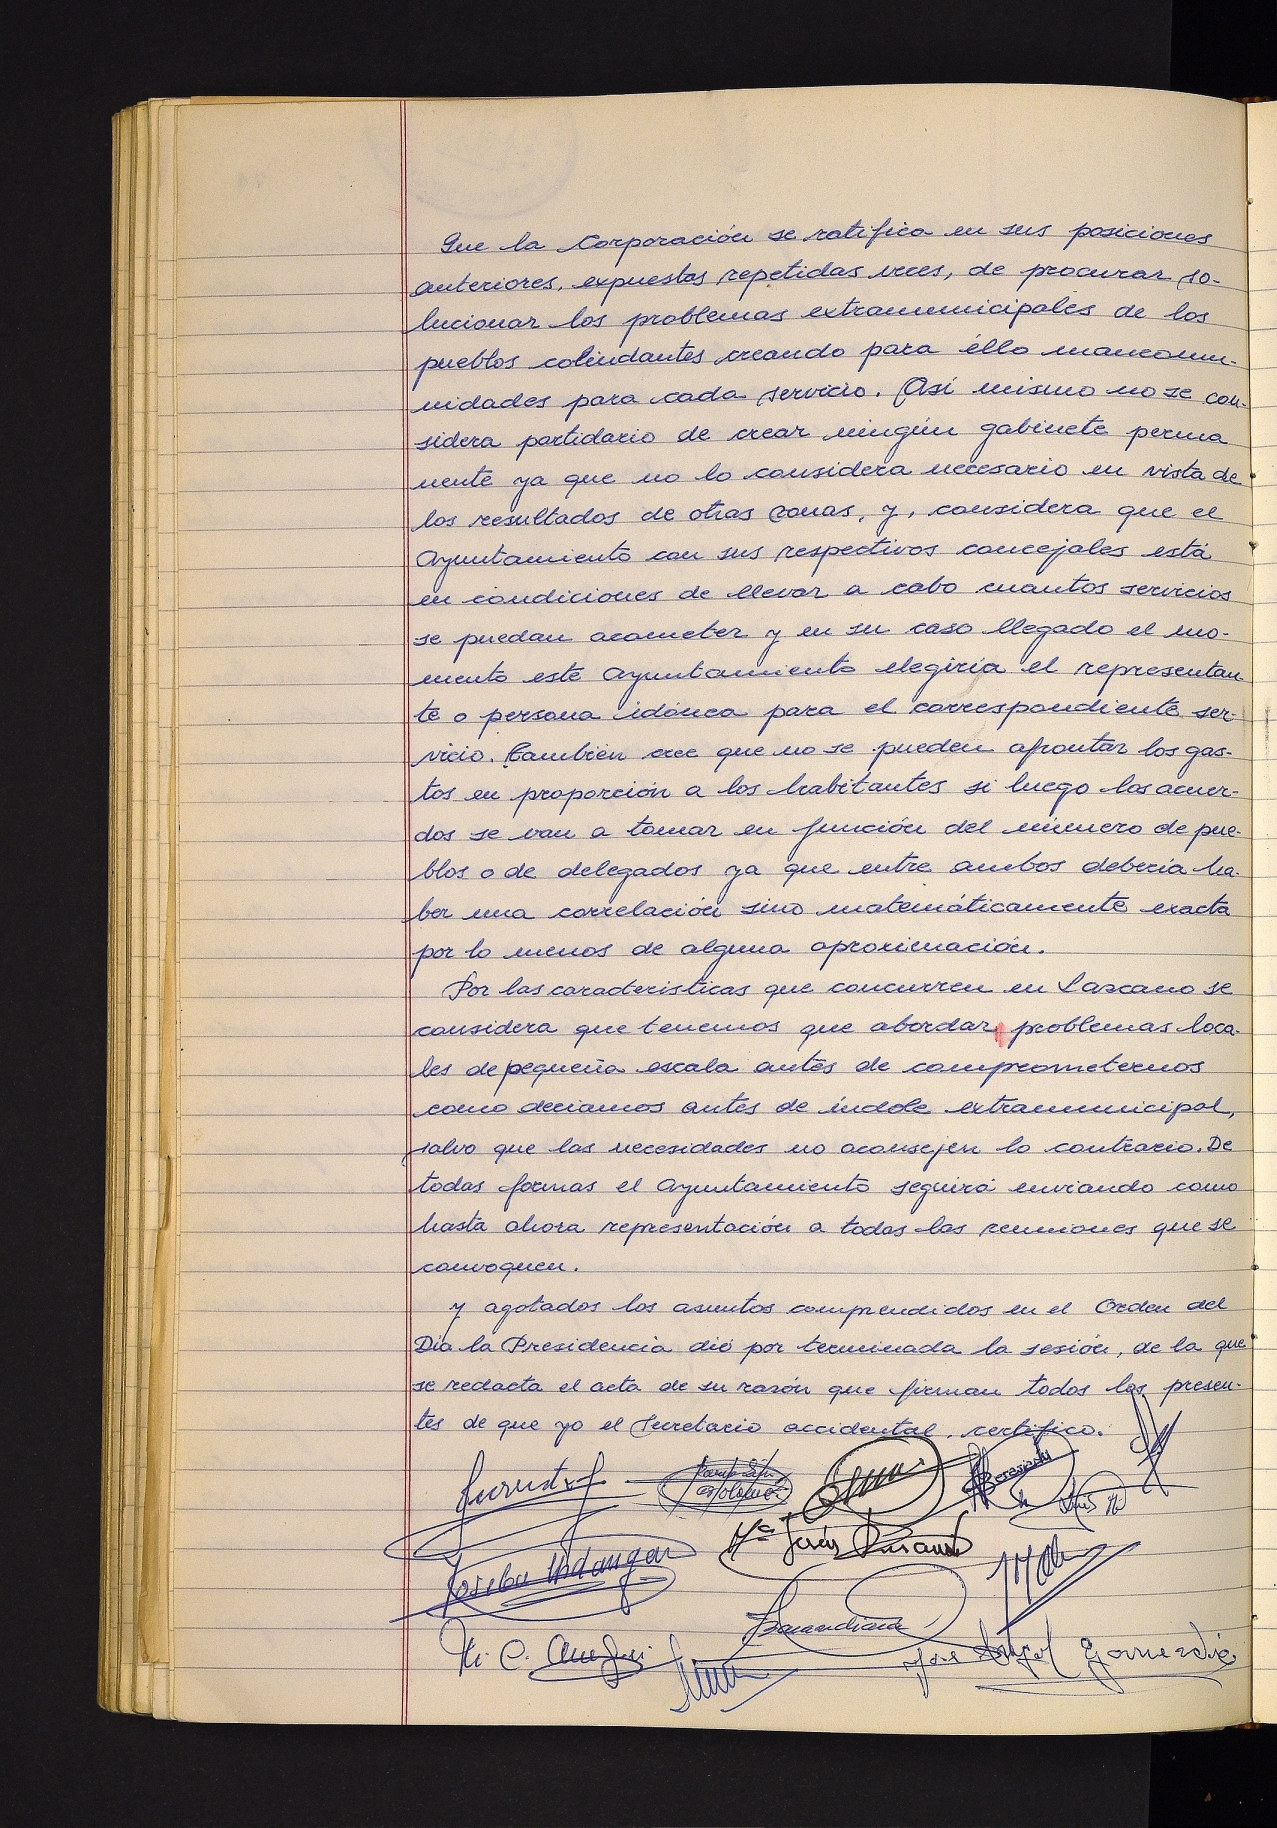 Que la Corporación se ratifica en sus posiciones
anteriores, expuestas repetidas veces, de procurar so-
lucionar los problemas extramunicipales de los
pueblos colindantes creando para éllo mancomu-
nidades para cada servicio. Así mismo no se con-
sidera partidario de crear ningún gabinete perma
nente ya que no lo considera necesario en vista de
los resultados de otras zonas, y, considera que el
Ayuntamiento con sus respectivos concejales está
en condiciones de llevar a cabo cuantos servicios
se puedan acometer y en su caso llegado el mo-
mento este Ayuntamiento elegiría el representan
te o persona idónea para el correspondiente ser-
vicio. También cree que no se pueden afrontar los gas-
tos en proporción a los habitantes si luego los acuer-
dos se van a tomar en función del número de pue-
blos o de delegados ya que entre ambos debería ha-
ber una correlación sino matemáticamente exacta
por lo menos de alguna aproximación.
Por las caracteristicas que concurren en Lazcano se
considera que tenemos que abordar problemas loca-
les de pequeña escala antes de comprometernos
como deciamos antes de índole extramunicipal,
salvo que las necesidades no aconsejen lo contrario. De
todas formas el Ayuntamiento seguirá enviando como
hasta ahora representación a todas las reuniones que se
convoquen.
y agotados los asuntos comprendidos en el Orden del
Día la Presidencia dió por terminada la sesión, de la que
se redacta el acta de su razón que firman todos los presen-
tes de que yo el Secretario accidental, certifico.
Mª Jesús
Joseba
Barandiaran
M. C.
Jose Angel Garmendia